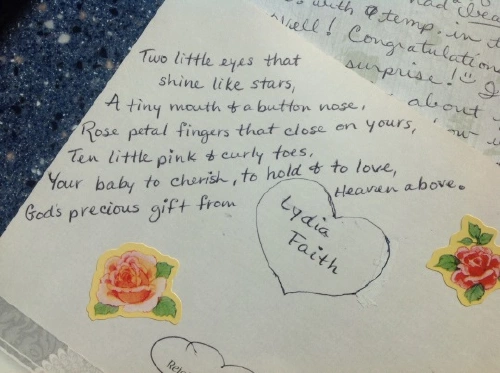 had
s with a temp. in t
Well! Congratulation
surprise! I
about
Two little eyes that
shine like stars,
A tiny mouth & a button nose,
Rose petal fingers that close on yours,
Ten little pink & curly toes,
Your baby to cherish, to hold & to love,
God's precious gift from Heaven above.
Lydia
Faith